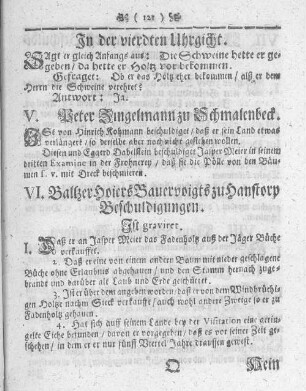 ( 121 )
In der vierdten Uhrgicht.
Sagt er gleich Anfangs aus: Die Schweine hette er gegeben / da hette er Holtz vor bekommen.
Gefraget: Ob er das Holtz eher bekommen / als er dem
Herrn die Schweine verehret?
Antwort: Ja.
V. Peter Ringelmann zu Schmalenbeck.
Ist von Hinrich Kohmann beschuldiget / daß er sein Land etwas
verlängert / so derselbe aber noch nicht gestehen wollen.
Diesen und Eggerd Dabelstein beschuldiget Jasper Meier in seinem
dritten Examine in der Frohnerey / daß sie die Pölle von den Bäu-
men s. v. mit Dreck beschmieret.
VI. Baltzer Hoiers Bauervoigts zu Hanstorp
Beschuldigungen.
Ist graviret.
1. Daß er an Jasper Meier das Fadenholtz auß der Jäger Büche
verkauffet.
2. Daß er eine von einem andern Baum mit nieder geschlagene
Büche ohne Erlaubnis abgehauen / und den Stamm hernach zuge-
brandt und darüber als Laub und Erde geschüttet.
3. Ist über dem angemeldet worden / daß er von dem Windbrüchi-
gen Holtze nachm Sieck verkauffe / auch wohl andere Zweige so er zu
Fadenholtz gehauen.
4. Hat sich auff seinem Lande bey der Visitation eine gerin-
gelte Eiche befunden / davon er vorgegeben / daß es vor seiner Zeit ge-
schehen / in dem er er nur fünff Viertel Jahre draussen gewest.
Q Mein